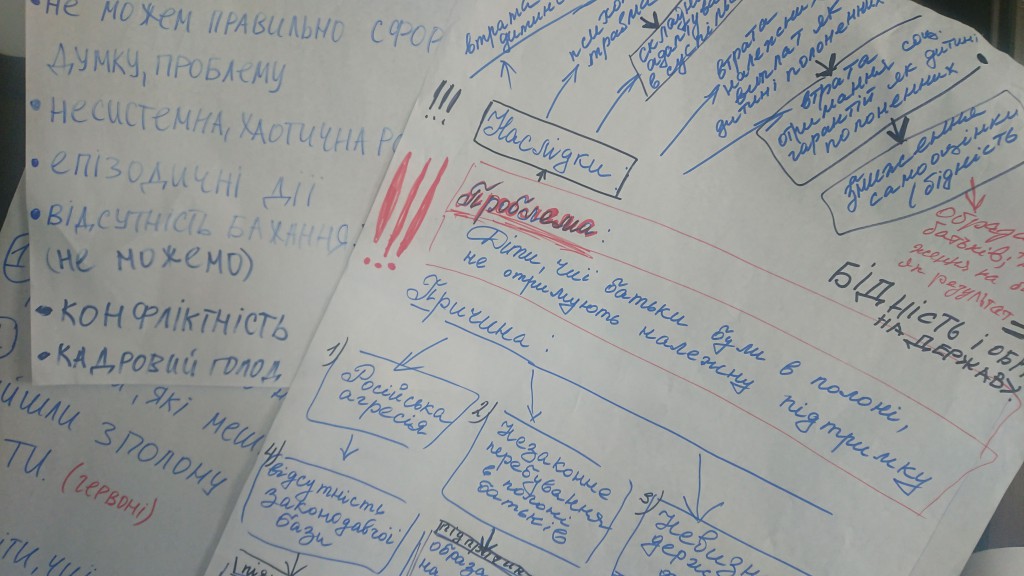 • не можем правильно сфор
думку, проблему
• несистемна, хаотична ро
• епізодичні дії
• відсутність бажання
(не можемо)
• конфліктність
• кадровий голод
, які меш
йшли з полону
ти. (червоні)
іти, чиї
втрата
дитинс
психо
травма
адап
в сусп
втрата
належних
виплат як
дитині полоне
втрата соц.
отримання
гарантій як дитині
полонених
Зниження
самооцінки
(бідність
Образа
батьків,
як результат
Бідність і обр
на державу
!!!
Наслідки
!!!
Проблема:
Діти, чиї батьки були в полоні,
не отримують належну підтримку
Причина:
1) Російська
агресія
2) Незаконне
перебування
в полоні
батьків
3) Невизн
держ
4) Відсутність
законодавчої
бази
образа
на